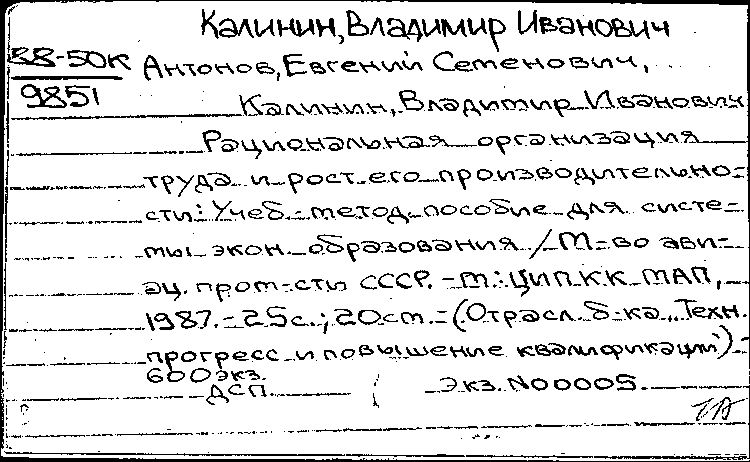 Калинин, Владимир Иванович
88-50К
9851
Антонов, Евгений Семенович,
Калинин, Владимир Иванович
Рациональная организация
труда и рост его производительно-
сти: Учеб.-метод. пособие для систе-
мы экон. образования / М-во ави-
ац. пром-сти СССР. - М.: ЦИПКК МАП,
1987. - 25с.; 20см. - (Отрасл. б-ка „Техн.
прогресс и повышение квалификации") -
600 экз.
ДСП
Экз. N00005.